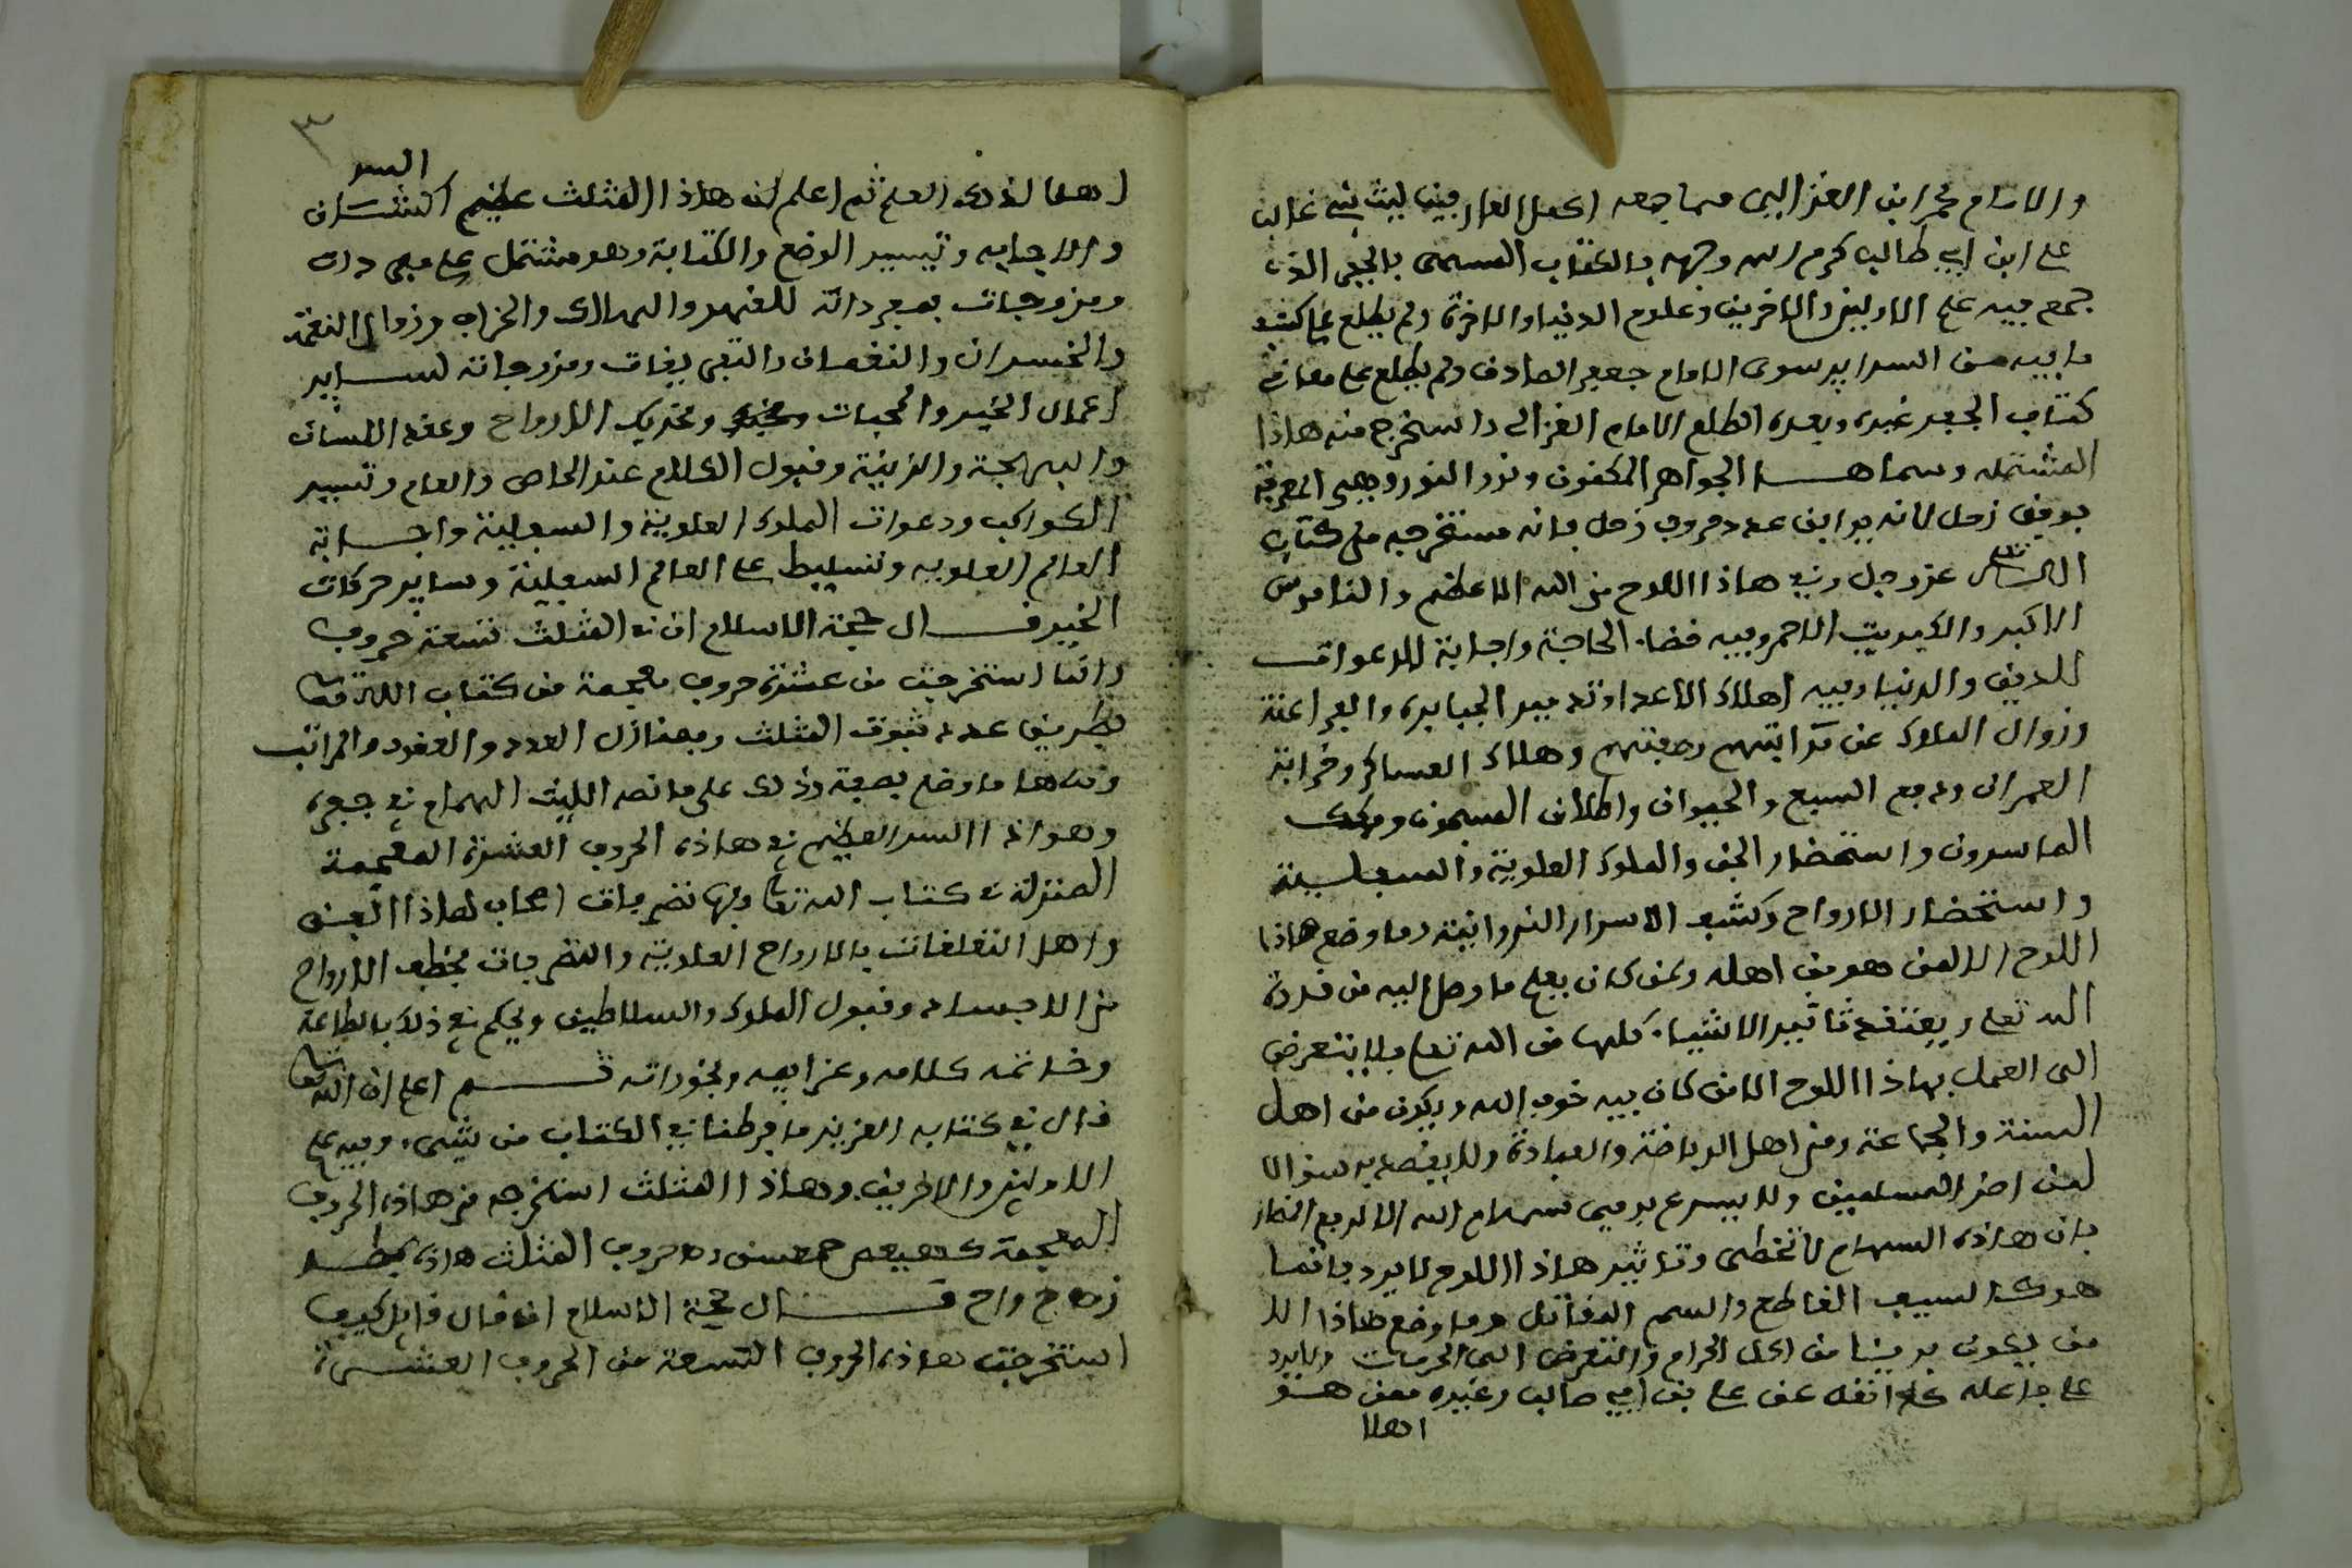 والامام محمد ابن الغزالي مما جمعه اكمل العارفين ليث بني غالب
علي ابن ابي طالب كرم الله وجهه بالكتاب المسمى بالجفر الذي
جمع فيه علم الاولين والاخرين وعلوم الدنيا والاخرة ولم يطلع على كشف
ما فيه من السراير سوى الامام جعفر الصادق ولم يطلع على معاني
كتاب الجفر غيره وبعده اطلع الامام الغزالي واستخرج منه هاذا
المشتمله وسماها الجواهر المكنون ونور النور وهي المعرفة
بوفق زحل لانه يوافق عدد حروف زحل فانه مستخرجه من كتاب
الله عز وجل وفي هاذا اللوح من الله الاعظم والناموس
الاكبر والكبريت الاحمر وفيه قضاء الحاجة واجابة الدعوات
للدين والدنيا وفيه اهلاك الاعدا وتدمير الجبابره والفراعنة
وزوال الملوك عن مراتبهم وهلاك العساكر وخرابة
العمران ودفع السبع والحيوان واطلاق المسجون وفك
الماسورين واستحضار الجن والملوك العلوية والسفلية
واستحضار الارواح وكشف الاسرار النورانية وما وضع هاذا
اللوح الا لمن هو من اهله ولمن كان يعلم ما وصل اليه من قدرة
الله تعلى ويعتقد تاثير الاشياء كلها من الله تعا ولا يتعرض
الى العمل بهاذا اللوح الا من كان فيه خوف الله ويكون من اهل
السنة والجماعة ومن اهل الرياضة والعبادة ولا يقصد به سوا الا
لمن اضر المسلمين ولا يسرع برمي سهام الله الا لدفع
فان هاذه السهام لا تخطي وتاثير هاذا اللوح لا يرد فانما
هو كالسيف القاطع والسم القاتل وما وضع هاذا الا
من يكون بريئا من اكل الحرام والتعرض الى الحرمات ولا يرد
على فاعله كما نقله عن علي بن ابي طالب وغيره ممن هو
اهلا
٣
اهلا لذلك العلم ثم اعلم ان هاذا المثلث عظيم الشان
السر
والاجابه وتيسير الوضع والكتابة وهو مشتمل على مفردات
ومزوجات بمفرداته للقهر والهلاك والخراب وزوال النعمة
والخسران والنقصان والتفريقات ومزوجاته لساير
اعمال الخير والمحبات وتحريك الارواح وعقد اللسان
والبهجة والزينة وقبول الكلام عند الخاص والعام وتسيير
الكواكب ودعوات الملوك العلوية والسفلية واجابة
العالم العلويه وتسليط على العالم السفلية وساير حركات
الخير قال حجة الاسلام ان في المثلث تسعة حروف
وانما استخرجت من عشرة حروف معجمة من كتاب الله تعا
بطريق عدد ثبوت المثلث وبمنازل العدد والعقود والمراتب
وضع بصفة وذلك على ما نصه الليث الهمام في جفره
وهو ان السر العظيم في هاذه الحروف العشرة المعجمة
المنزلة في كتاب الله تعا وبها تصرفات اصحاب هاذا الفن
واهل التعلقات بالارواح العلوية والتصرفات بخطف الارواح
من الاجساد وقبول الملوك والسلاطين ويحكم في ذلك بالطاعة
وخاتمه كلامه وعزايمه وبخوراته ثم اعلم ان الله تعا
قال في كتابه العزيز ما فرطنا في الكتاب من شيء وفيه علم
الاولين والاخرين وهاذا المثلث استخرجه من هاذه الحروف
المعجمة كهيعص حمعسق وحروف المثلث هاذه بطد
زهج واح قال حجة الاسلام ان قال قايل كيف
استخرجت هاذه الحروف التسعة من الحروف العشرة